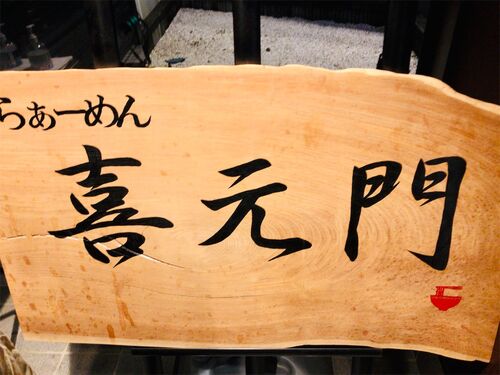 らぁーめん
喜元門